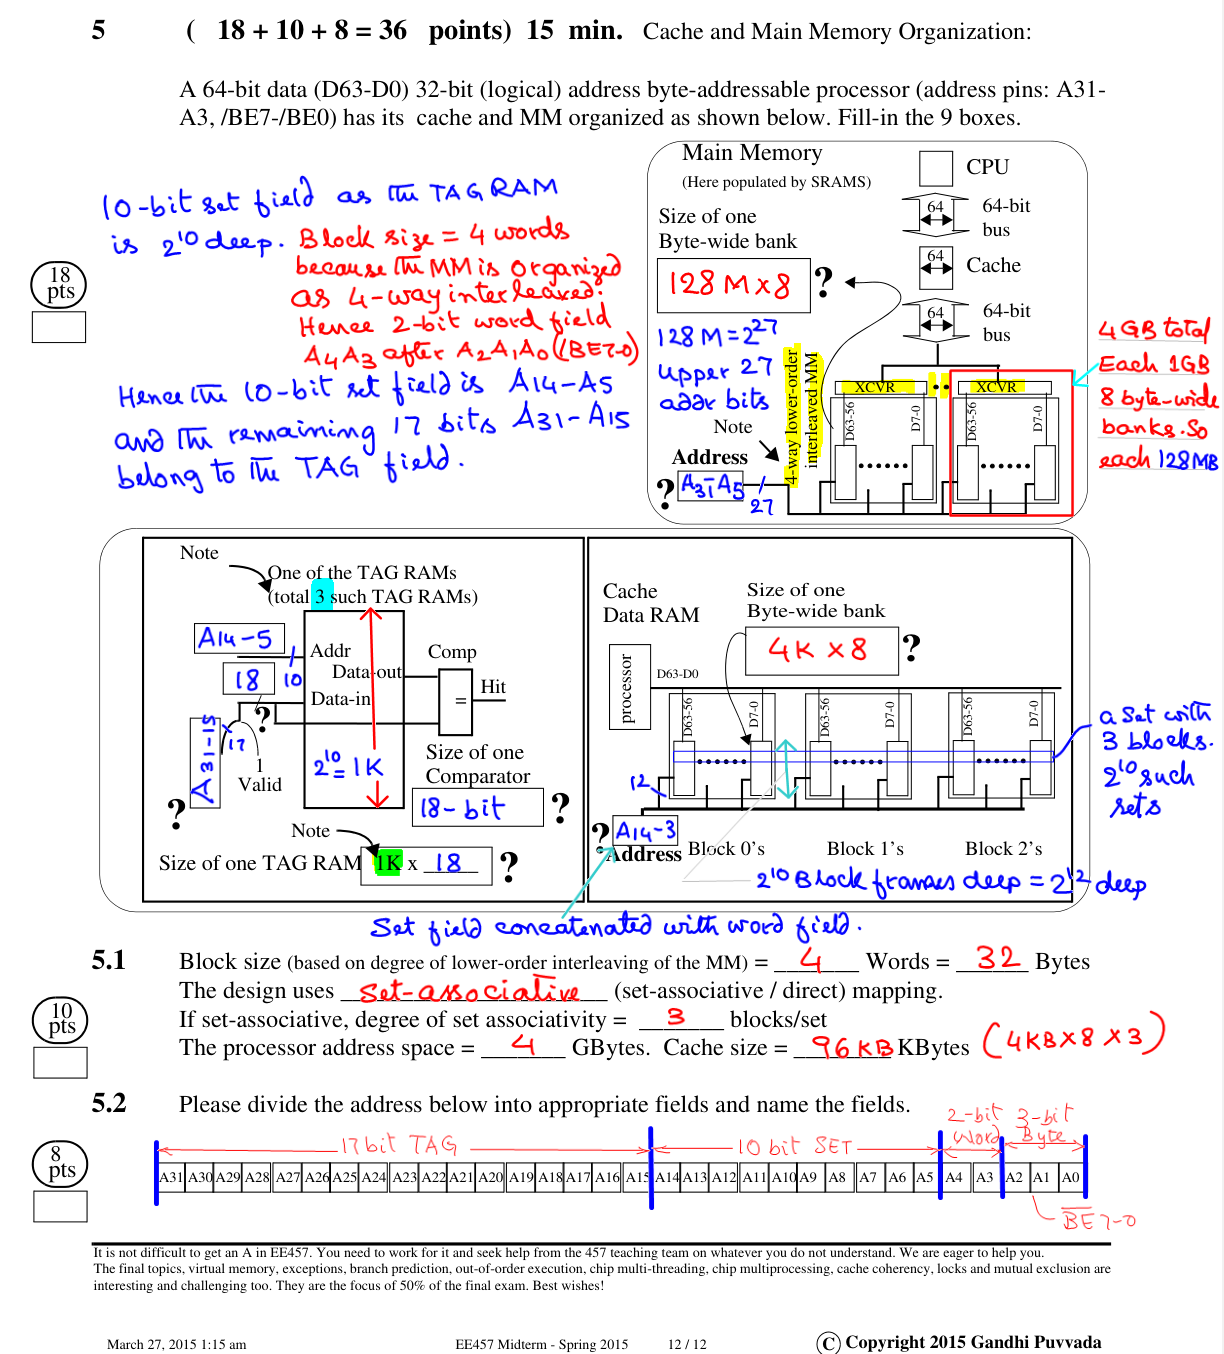 5 ( 18 + 10 + 8 = 36 points) 15 min. Cache and Main Memory Organization:
A 64-bit data (D63-D0) 32-bit (logical) address byte-addressable processor (address pins: A31-
A3, /BE7-/BE0) has its cache and MM organized as shown below. Fill-in the 9 boxes.
10-bit set field as the TAG RAM
is 2^10 deep. Block size = 4 words
because the MM is organized
as 4-way interleaved.
Hence 2-bit word field
A4A3 after A2A1A0 (BE7-0)
Hence the 10-bit set field is A14-A5
and the remaining 17 bits A31-A15
belong to the TAG field.
18
pts
Main Memory
(Here populated by SRAMS)
Size of one
Byte-wide bank
128 M x 8 ?
128 M = 2^27
upper 27
addr bits
Note
Address
? A31-A5
27
4-way lower-order
interleaved MM
CPU
64
64-bit
bus
64
Cache
64
64-bit
bus
XCVR
XCVR
D63-56
D7-0
D63-56
D7-0
4 GB total
Each 1GB
8 byte-wide
banks. So
each 128MB
Note
One of the TAG RAMs
(total 3 such TAG RAMs)
A14-5
10
18
?
A31-15
17
1
Valid
?
Addr
Data-out
Data-in
2^10 = 1K
Comp
=
Hit
Size of one
Comparator
18-bit ?
Note
Size of one TAG RAM 1K x 18 ?
Cache
Data RAM
Size of one
Byte-wide bank
4K x 8 ?
processor
D63-D0
D63-56
D7-0
D63-56
D7-0
D63-56
D7-0
12
? A14-3
Address
Block 0's
Block 1's
Block 2's
2^10 Block frames deep = 2^12 deep
a set with
3 blocks.
2^10 such
sets
Set field concatenated with word field.
5.1 Block size (based on degree of lower-order interleaving of the MM) = 4 Words = 32 Bytes
The design uses set-associative (set-associative / direct) mapping.
If set-associative, degree of set associativity = 3 blocks/set
The processor address space = 4 GBytes. Cache size = 96 KB KBytes (4KB x 8 x 3)
10
pts
5.2 Please divide the address below into appropriate fields and name the fields.
8
pts
17 bit TAG
10 bit SET
2-bit
Word
3-bit
Byte
A31 A30 A29 A28 A27 A26 A25 A24 A23 A22 A21 A20 A19 A18 A17 A16 A15 A14 A13 A12 A11 A10 A9 A8 A7 A6 A5 A4 A3 A2 A1 A0
BE7-0
It is not difficult to get an A in EE457. You need to work for it and seek help from the 457 teaching team on whatever you do not understand. We are eager to help you.
The final topics, virtual memory, exceptions, branch prediction, out-of-order execution, chip multi-threading, chip multiprocessing, cache coherency, locks and mutual exclusion are
interesting and challenging too. They are the focus of 50% of the final exam. Best wishes!
March 27, 2015 1:15 am
EE457 Midterm - Spring 2015
12 / 12
© Copyright 2015 Gandhi Puvvada